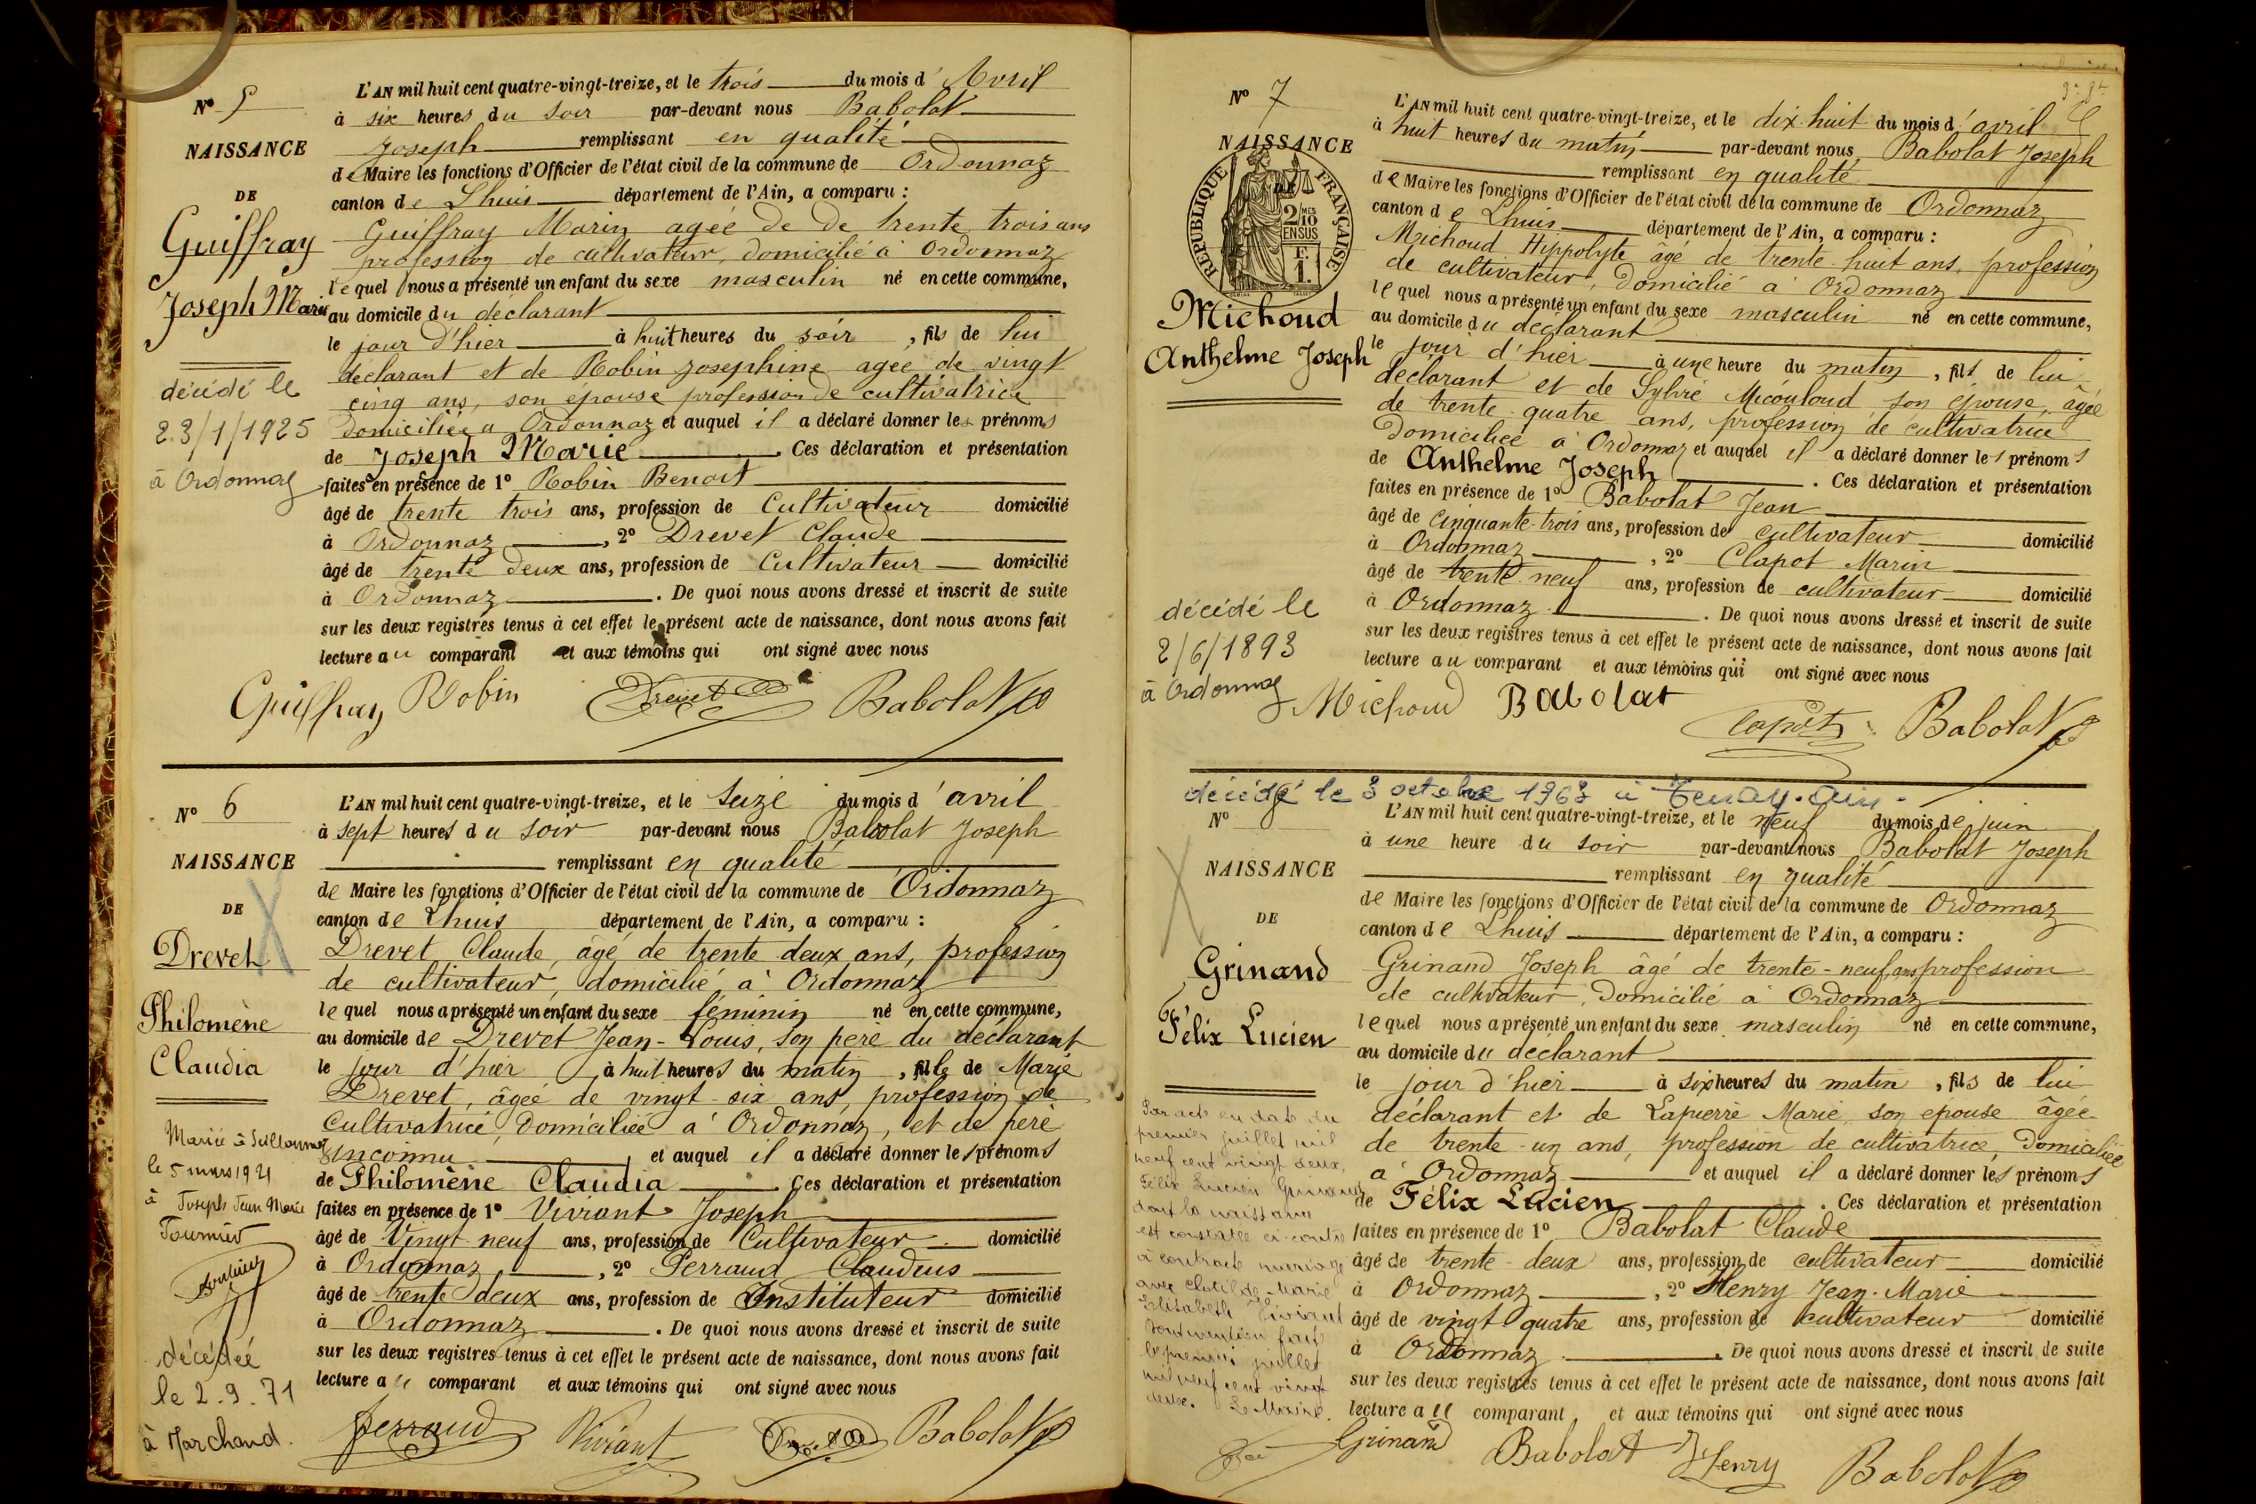 N° 5
NAISSANCE
DE
Guiffray
Joseph Marie
décédé le
23/1/1925
à Ordonnaz
L'AN mil huit cent quatre-vingt-treize, et le trois du mois d'Avril
à six heures du soir par-devant nous Babolat
Joseph remplissant en qualité
de Maire les fonctions d'Officier de l'état civil de la commune de Ordonnaz
canton de Lhuis département de l'Ain, a comparu :
Guiffray Marin agée de De trente trois ans
profession de cultivateur, domicilié à Ordonnaz
lequel nous a présenté un enfant du sexe masculin né en cette commune,
au domicile du déclarant
le jour d'hier à huit heures du soir, fils de lui
déclarant et de Robin Josephine agée de vingt
cinq ans, son épouse profession de cultivatrice
domiciliée à Ordonnaz et auquel il a déclaré donner les prénoms
de Joseph Marie. Ces déclaration et présentation
faites en présence de 1° Robin Benoit
âgé de trente trois ans, profession de Cultivateur domicilié
à Ordonnaz, 2° Drevet Claude
âgé de trente deux ans, profession de Cultivateur domicilié
à Ordonnaz. De quoi nous avons dressé et inscrit de suite
sur les deux registres tenus à cet effet le présent acte de naissance, dont nous avons fait
lecture au comparant et aux témoins qui ont signé avec nous
Guiffray Robin Drevet Babolat
N° 6
NAISSANCE
DE
Drevet
Philomène
Claudia
Mariée à
le 5 mars 1921
à Joseph Jean Marie
Fournier
décédée
le 2.9.71
à Marchand.
L'AN mil huit cent quatre-vingt-treize, et le seize du mois d'avril
à sept heures du soir par-devant nous Babolat Joseph
remplissant en qualité
de Maire les fonctions d'Officier de l'état civil de la commune de Ordonnaz
canton de Lhuis département de l'Ain, a comparu :
Drevet Claude, âgé de trente deux ans, profession
de cultivateur, domicilié à Ordonnaz
lequel nous a présenté un enfant du sexe féminin né en cette commune,
au domicile de Drevet Jean-Louis, son père du déclarant
le jour d'hier à huit heures du matin, fille de Marie
Drevet, âgée de vingt-six ans, profession de
cultivatrice, domiciliée à Ordonnaz, et de père
inconnu et auquel il a déclaré donner les prénoms
de Philomène Claudia. Ces déclaration et présentation
faites en présence de 1° Viviant Joseph
âgé de Vingt neuf ans, profession de Cultivateur domicilié
à Ordonnaz, 2° Perraud Claudius
âgé de trente deux ans, profession de Instituteur domicilié
à Ordonnaz. De quoi nous avons dressé et inscrit de suite
sur les deux registres tenus à cet effet le présent acte de naissance, dont nous avons fait
lecture au comparant et aux témoins qui ont signé avec nous
Perraud Viviant Drevet Babolat
N° 7
NAISSANCE
DE
RÉPUBLIQUE FRANÇAISE
2 MES
10
EN SUS
F.
1.
Michoud
Anthelme Joseph
décédé le
2/6/1893
à Ordonnaz
L'AN mil huit cent quatre-vingt-treize, et le dix-huit du mois d'avril
à huit heures du matin par-devant nous Babolat Joseph
remplissant en qualité
de Maire les fonctions d'Officier de l'état civil de la commune de Ordonnaz
canton de Lhuis département de l'Ain, a comparu :
Michoud Hippolyte âgé de trente-huit ans, profession
de cultivateur, domicilié à Ordonnaz
lequel nous a présenté un enfant du sexe masculin né en cette commune,
au domicile du déclarant
le jour d'hier à une heure du matin, fils de lui
déclarant et de Sylvie Micouloud son épouse, âgée
de trente-quatre ans, profession de cultivatrice
domiciliée à Ordonnaz et auquel il a déclaré donner les prénoms
de Anthelme Joseph. Ces déclaration et présentation
faites en présence de 1° Babolat Jean
âgé de cinquante-trois ans, profession de cultivateur domicilié
à Ordonnaz, 2° Clapot Marin
âgé de trente-neuf ans, profession de cultivateur domicilié
à Ordonnaz. De quoi nous avons dressé et inscrit de suite
sur les deux registres tenus à cet effet le présent acte de naissance, dont nous avons fait
lecture au comparant et aux témoins qui ont signé avec nous
Michoud Babolat Capot Babolat
décédé le 3 octobre 1963 à Tenay. Ain.
N° 8
NAISSANCE
DE
Grinand
Félix Lucien
Par acte en date du
premier juillet mil
neuf cent vingt deux,
Félix Lucien Grinand
dont la naissance
est constatée ci-contre
a contracté mariage
avec Clotilde-Marie
Elisabeth Viviant
le premier juillet
mil neuf cent vingt
deux. Le Maire.
L'AN mil huit cent quatre-vingt-treize, et le neuf du mois de juin
à une heure du soir par-devant nous Babolat Joseph
remplissant en qualité
de Maire les fonctions d'Officier de l'état civil de la commune de Ordonnaz
canton de Lhuis département de l'Ain, a comparu :
Grinand Joseph âgé de trente-neuf ans profession
de cultivateur, domicilié à Ordonnaz
lequel nous a présenté un enfant du sexe masculin né en cette commune,
au domicile du déclarant
le jour d'hier à six heures du matin, fils de lui
déclarant et de Lapierre Marie, son epouse âgée
de trente-un ans, profession de cultivatrice, domiciliée
à Ordonnaz et auquel il a déclaré donner les prénoms
de Félix Lucien. Ces déclaration et présentation
faites en présence de 1° Babolat Claude
âgé de trente-deux ans, profession de cultivateur domicilié
à Ordonnaz, 2° Henry Jean-Marie
âgé de vingt quatre ans, profession de cultivateur domicilié
à Ordonnaz. De quoi nous avons dressé et inscrit de suite
sur les deux registres tenus à cet effet le présent acte de naissance, dont nous avons fait
lecture au comparant et aux témoins qui ont signé avec nous
Grinand Babolat Henry Babolat